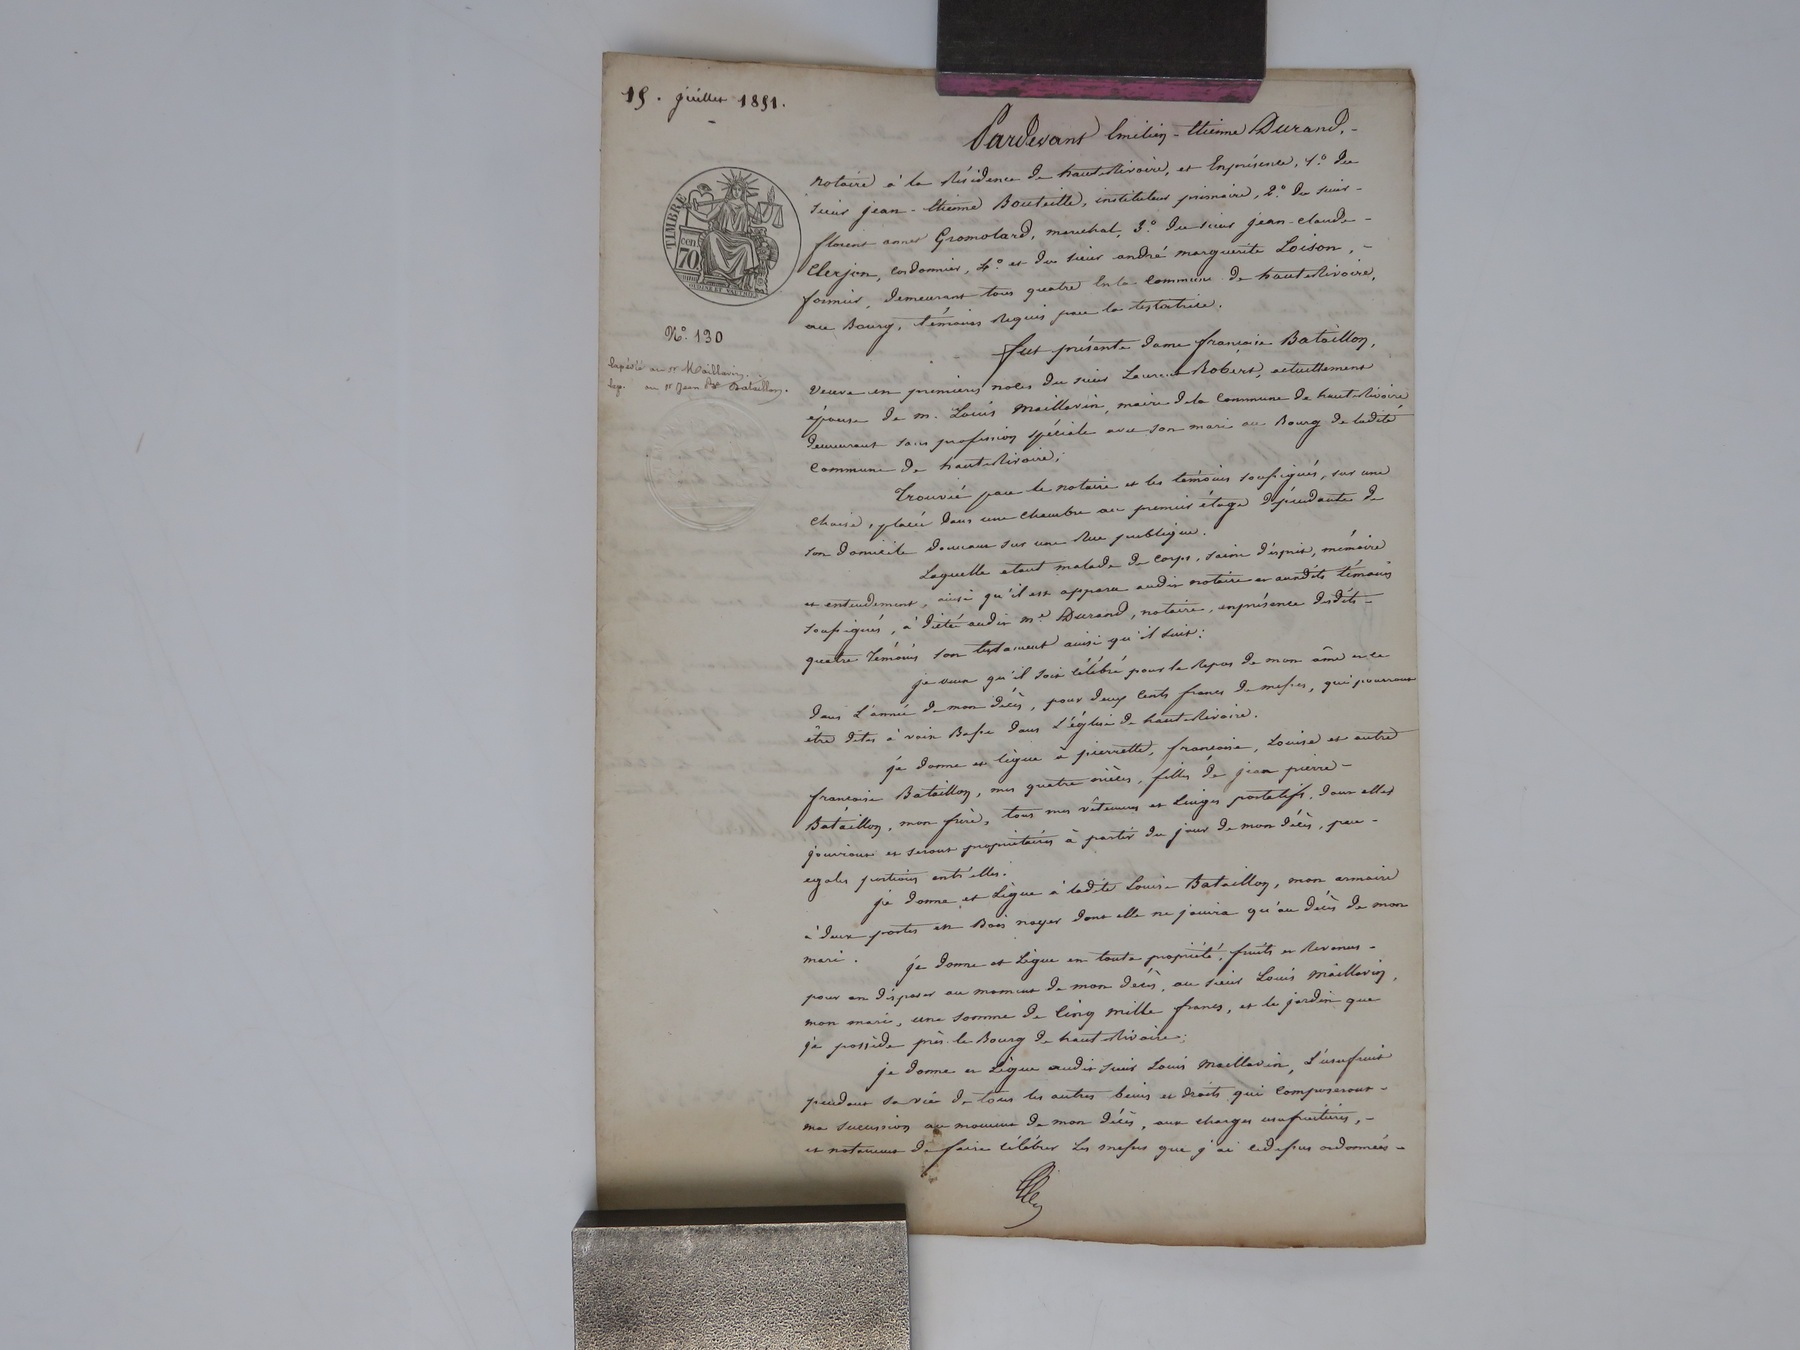 15. juillet 1851.
Pardevant Emilien-Etienne Durand,-
notaire à la Résidence de haute Rivoire, et Enprésence, 1.° du
sieur jean-Etienne Bouteille, instituteur primaire, 2.° du sieur-
florent annet Gromolard, marechal, 3.° du sieur jean-claude-
Clerjon, cordonnier, 4.° et du sieur andré marguerite Loison,-
fournier, demeurant tous quatre En la Commune de haute Rivoire,
au Bourg, témoins Requis par la testatrice.
TIMBRE
cen
70
N.° 130
Expédié au sr Maillavin.
au sr Jean Bataillon.
fut présente dame françoise Bataillon,
Veuve en premieres noces du sieur Laurent Robert, actuellement
épouse de m. Louis Maillavin, maire de la Commune de haute Rivoire
demeurant sans profession spéciale avec son mari au Bourg de ladite
Commune de haute Rivoire;
Trouvée par le notaire et les témoins soussignés, sur une
Chaise, placée dans une Chambre au premier étage dépendante de
son domicile donnant sur une Rue publique.
Laquelle etant malade de Corps, saine d'esprit, mémoire
et entendement, ainsi qu'il est apparu audit notaire et auxdits témoins
soussignés, à dicté audit me Durand, notaire, enprésence desdits-
quatre témoins son testament ainsi qu'il suit:
je veux qu'il soit célébré pour le Repos de mon âme et ce
dans L'année de mon décès, pour deux Cents francs de messes, qui pourront
être dites à voix Basse dans L'église de haute Rivoire.
je donne et légue à pierrette, françoise, Louise et autre
françoise Bataillon, mes quatre nièces, filles de jean pierre-
Bataillon, mon frère, tous mes vêtemens et Linges portatifs, dont elles
jouiront et seront propriétaires à partir du jour de mon décès, par-
egales portions entr'elles.
je donne et Légue à ladite Louise Bataillon, mon armoire
à deux portes en Bois noyer dont elle ne jouira qu'au décès de mon
mari.
je donne et Légue en toute propriété, fruits et Revenus-
pour en disposer au moment de mon décès, au sieur Louis Maillavin,
mon mari, une somme de Cinq mille francs, et le jardin que
je possède près le Bourg de haute Rivoire;
je donne et Légue audit sieur Louis Maillavin, L'usufruit
pendant sa vie de tous les autres biens et droits qui Composeront-
ma succession au moment de mon décès, aux charges usufruitières,-
et notament de faire célébrer Les messes que j'ai cidessus ordonnées-